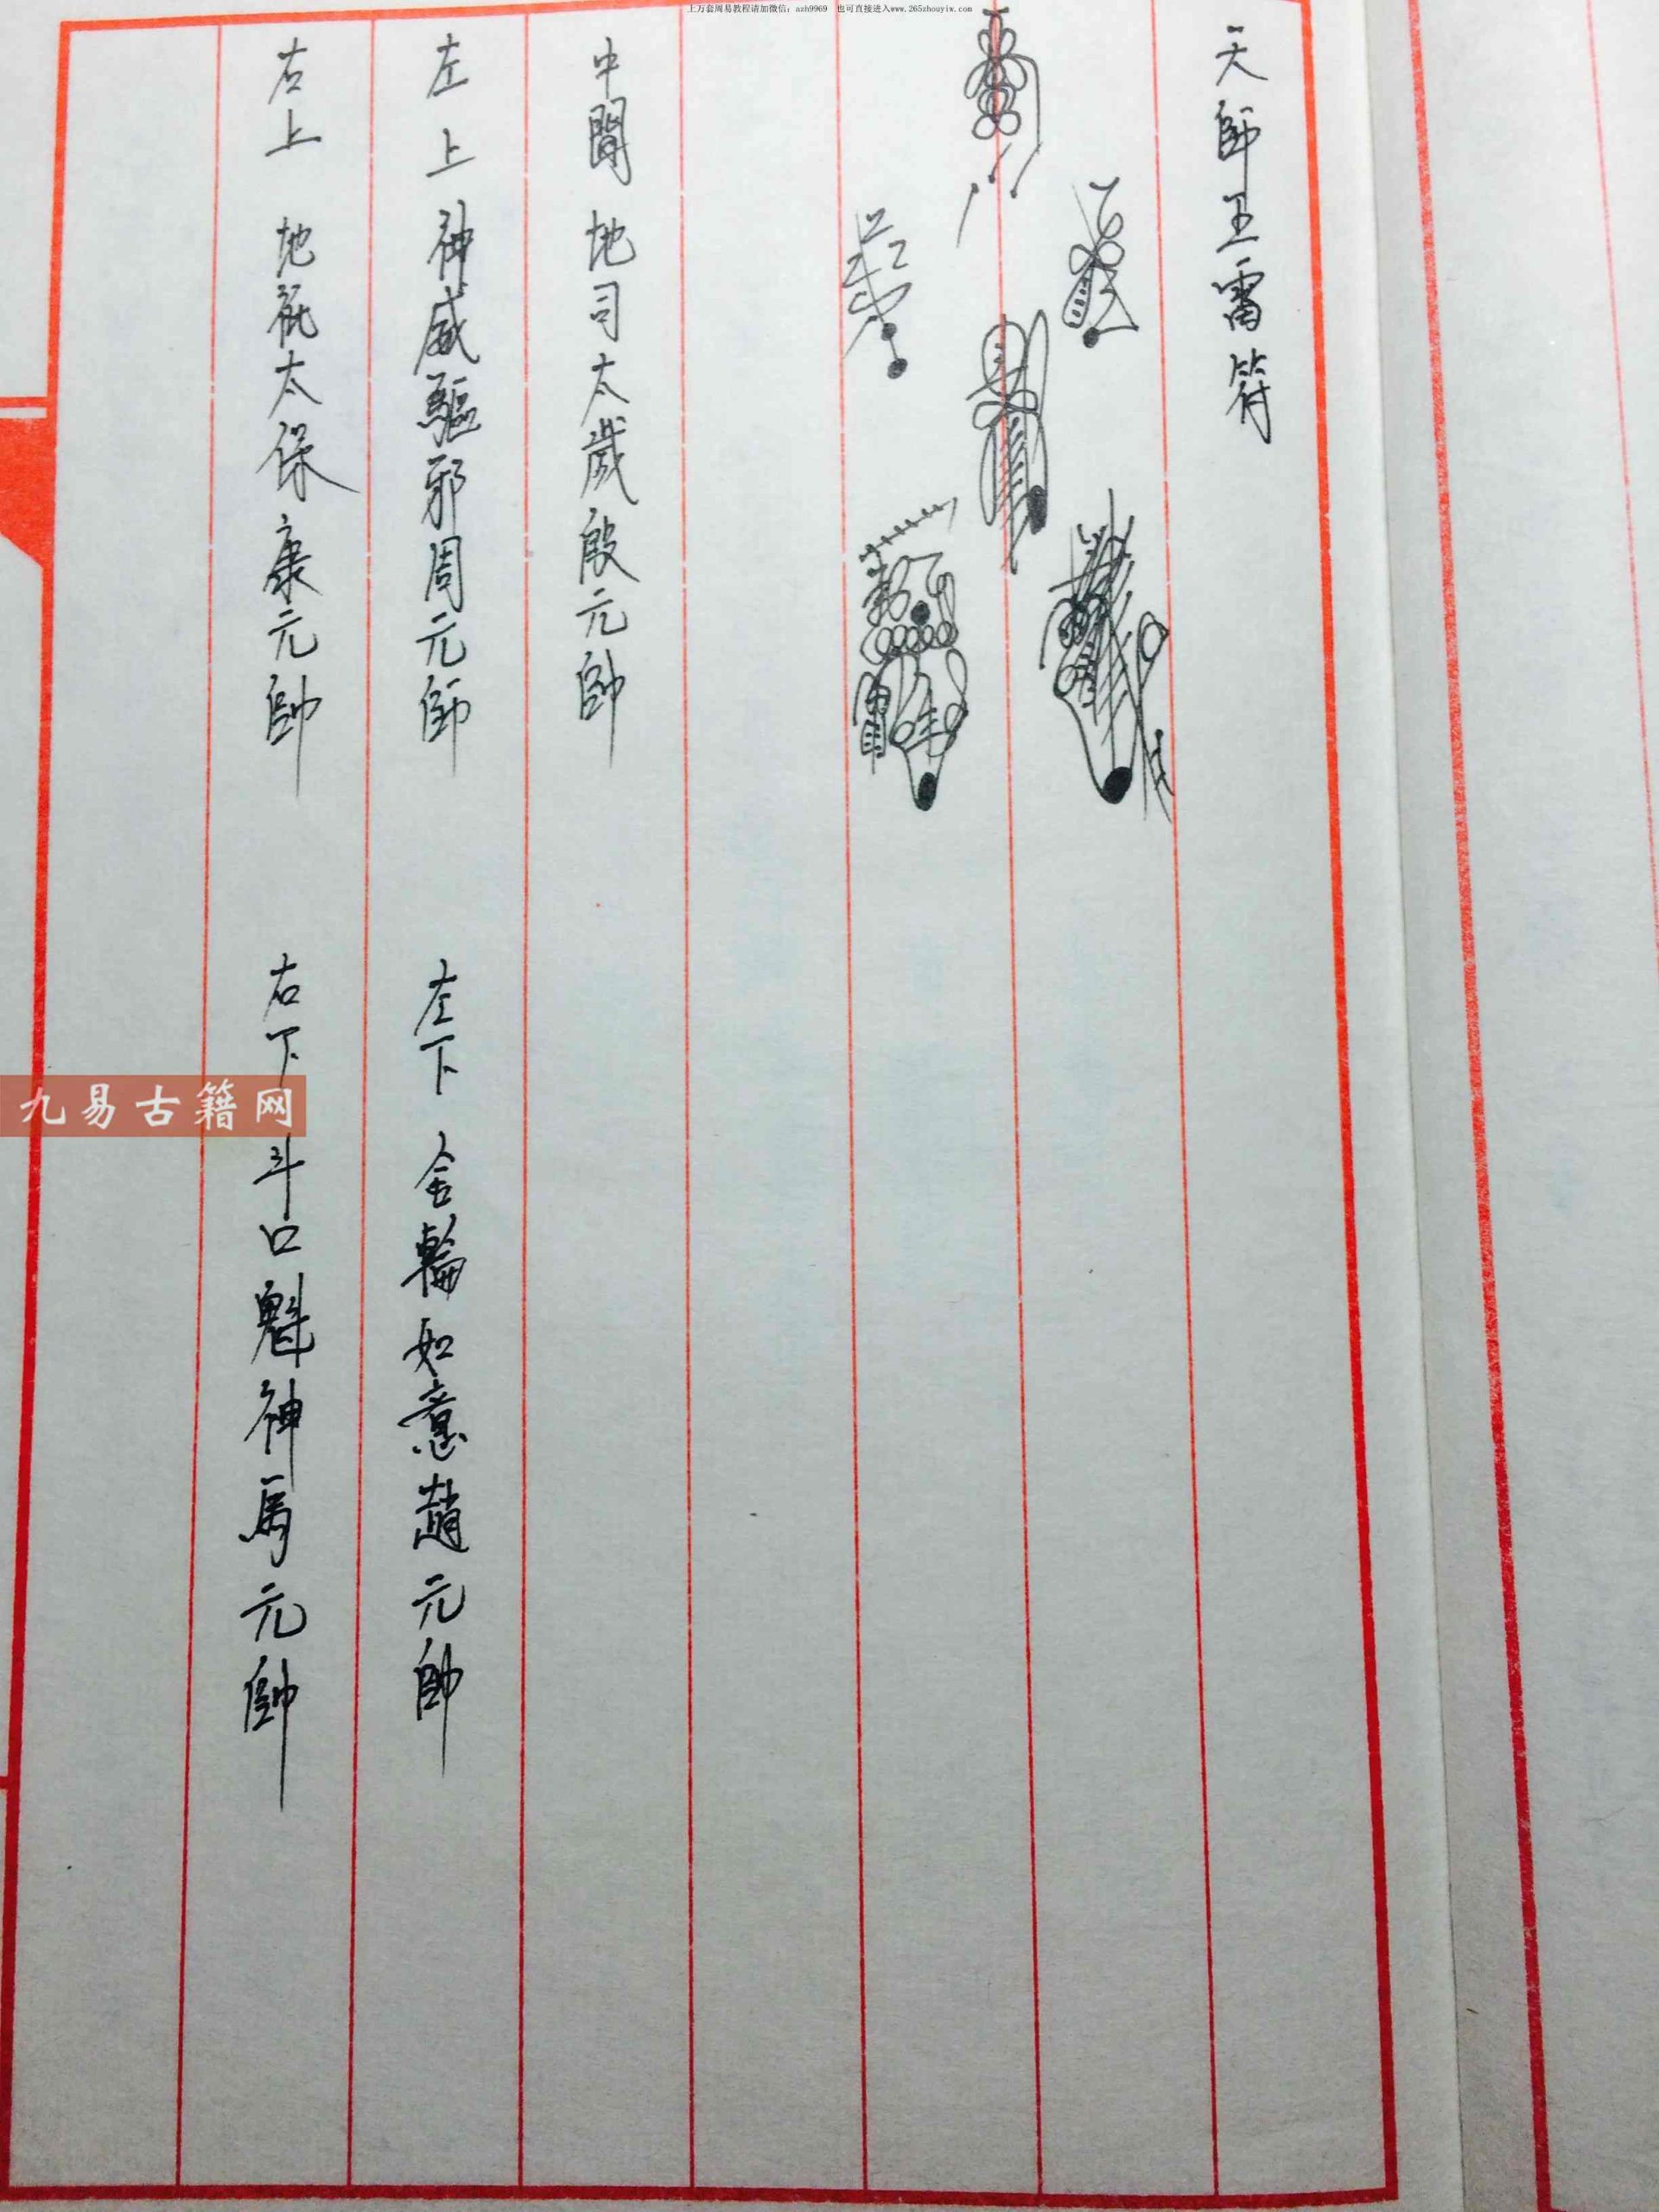 上万套周易教程请加微信：azh9969 也可直接进入www.265zhouyiw.com
天師五雷符
中間 地司太歲殷元帥
左上 神威驅邪周元帥
左下 金輪如意趙元帥
右上 地祇太保康元帥
右下 斗口魁神馬元帥
九易古籍网